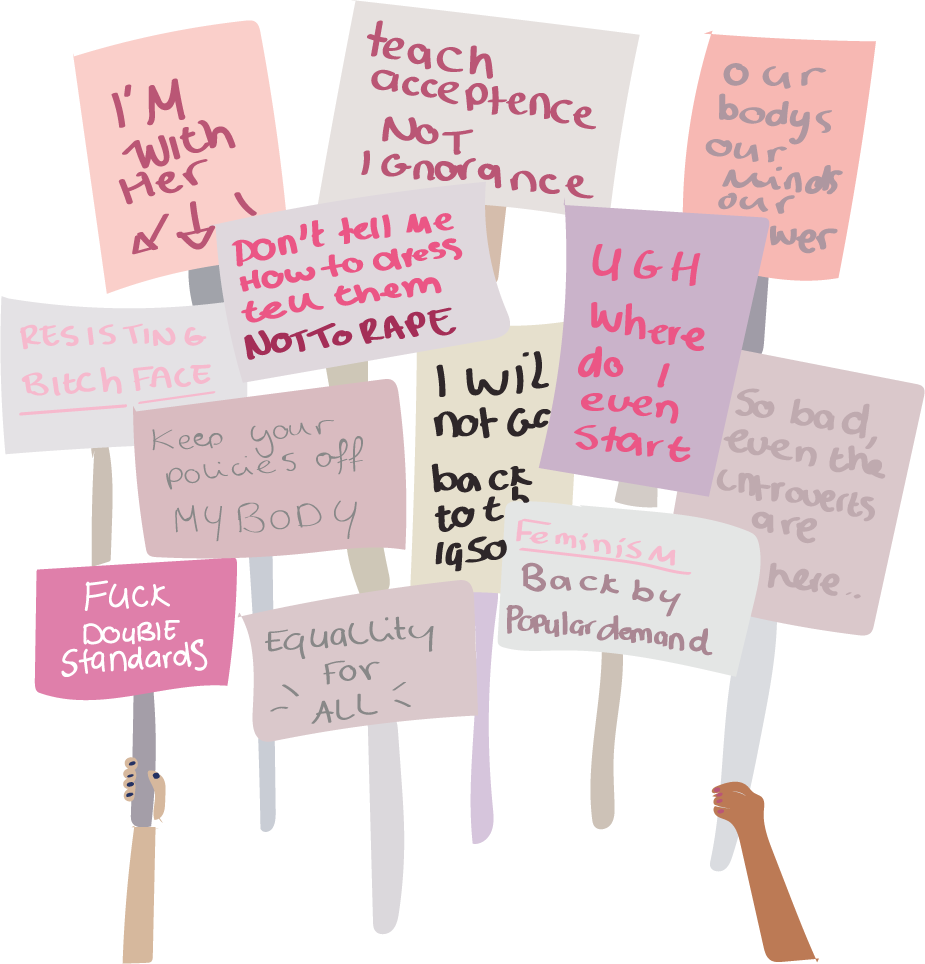 I'M
With
Her
teach
acceptence
NOT
IGnorance
our
bodys
our
minds
our
wer
Don't tell Me
How to dress
tell them
NOT TO RAPE
UGH
Where
do I
even
Start
RESISTING
Bitch FACE
I WIL
not Go
back
to th
1950
So bad,
even the
introverts
are
here..
Keep your
policies off
MY BODY
Feminism
Back by
Popular demand
Fuck
DOUBlE
StandardS
EquaLLity
For
ALL